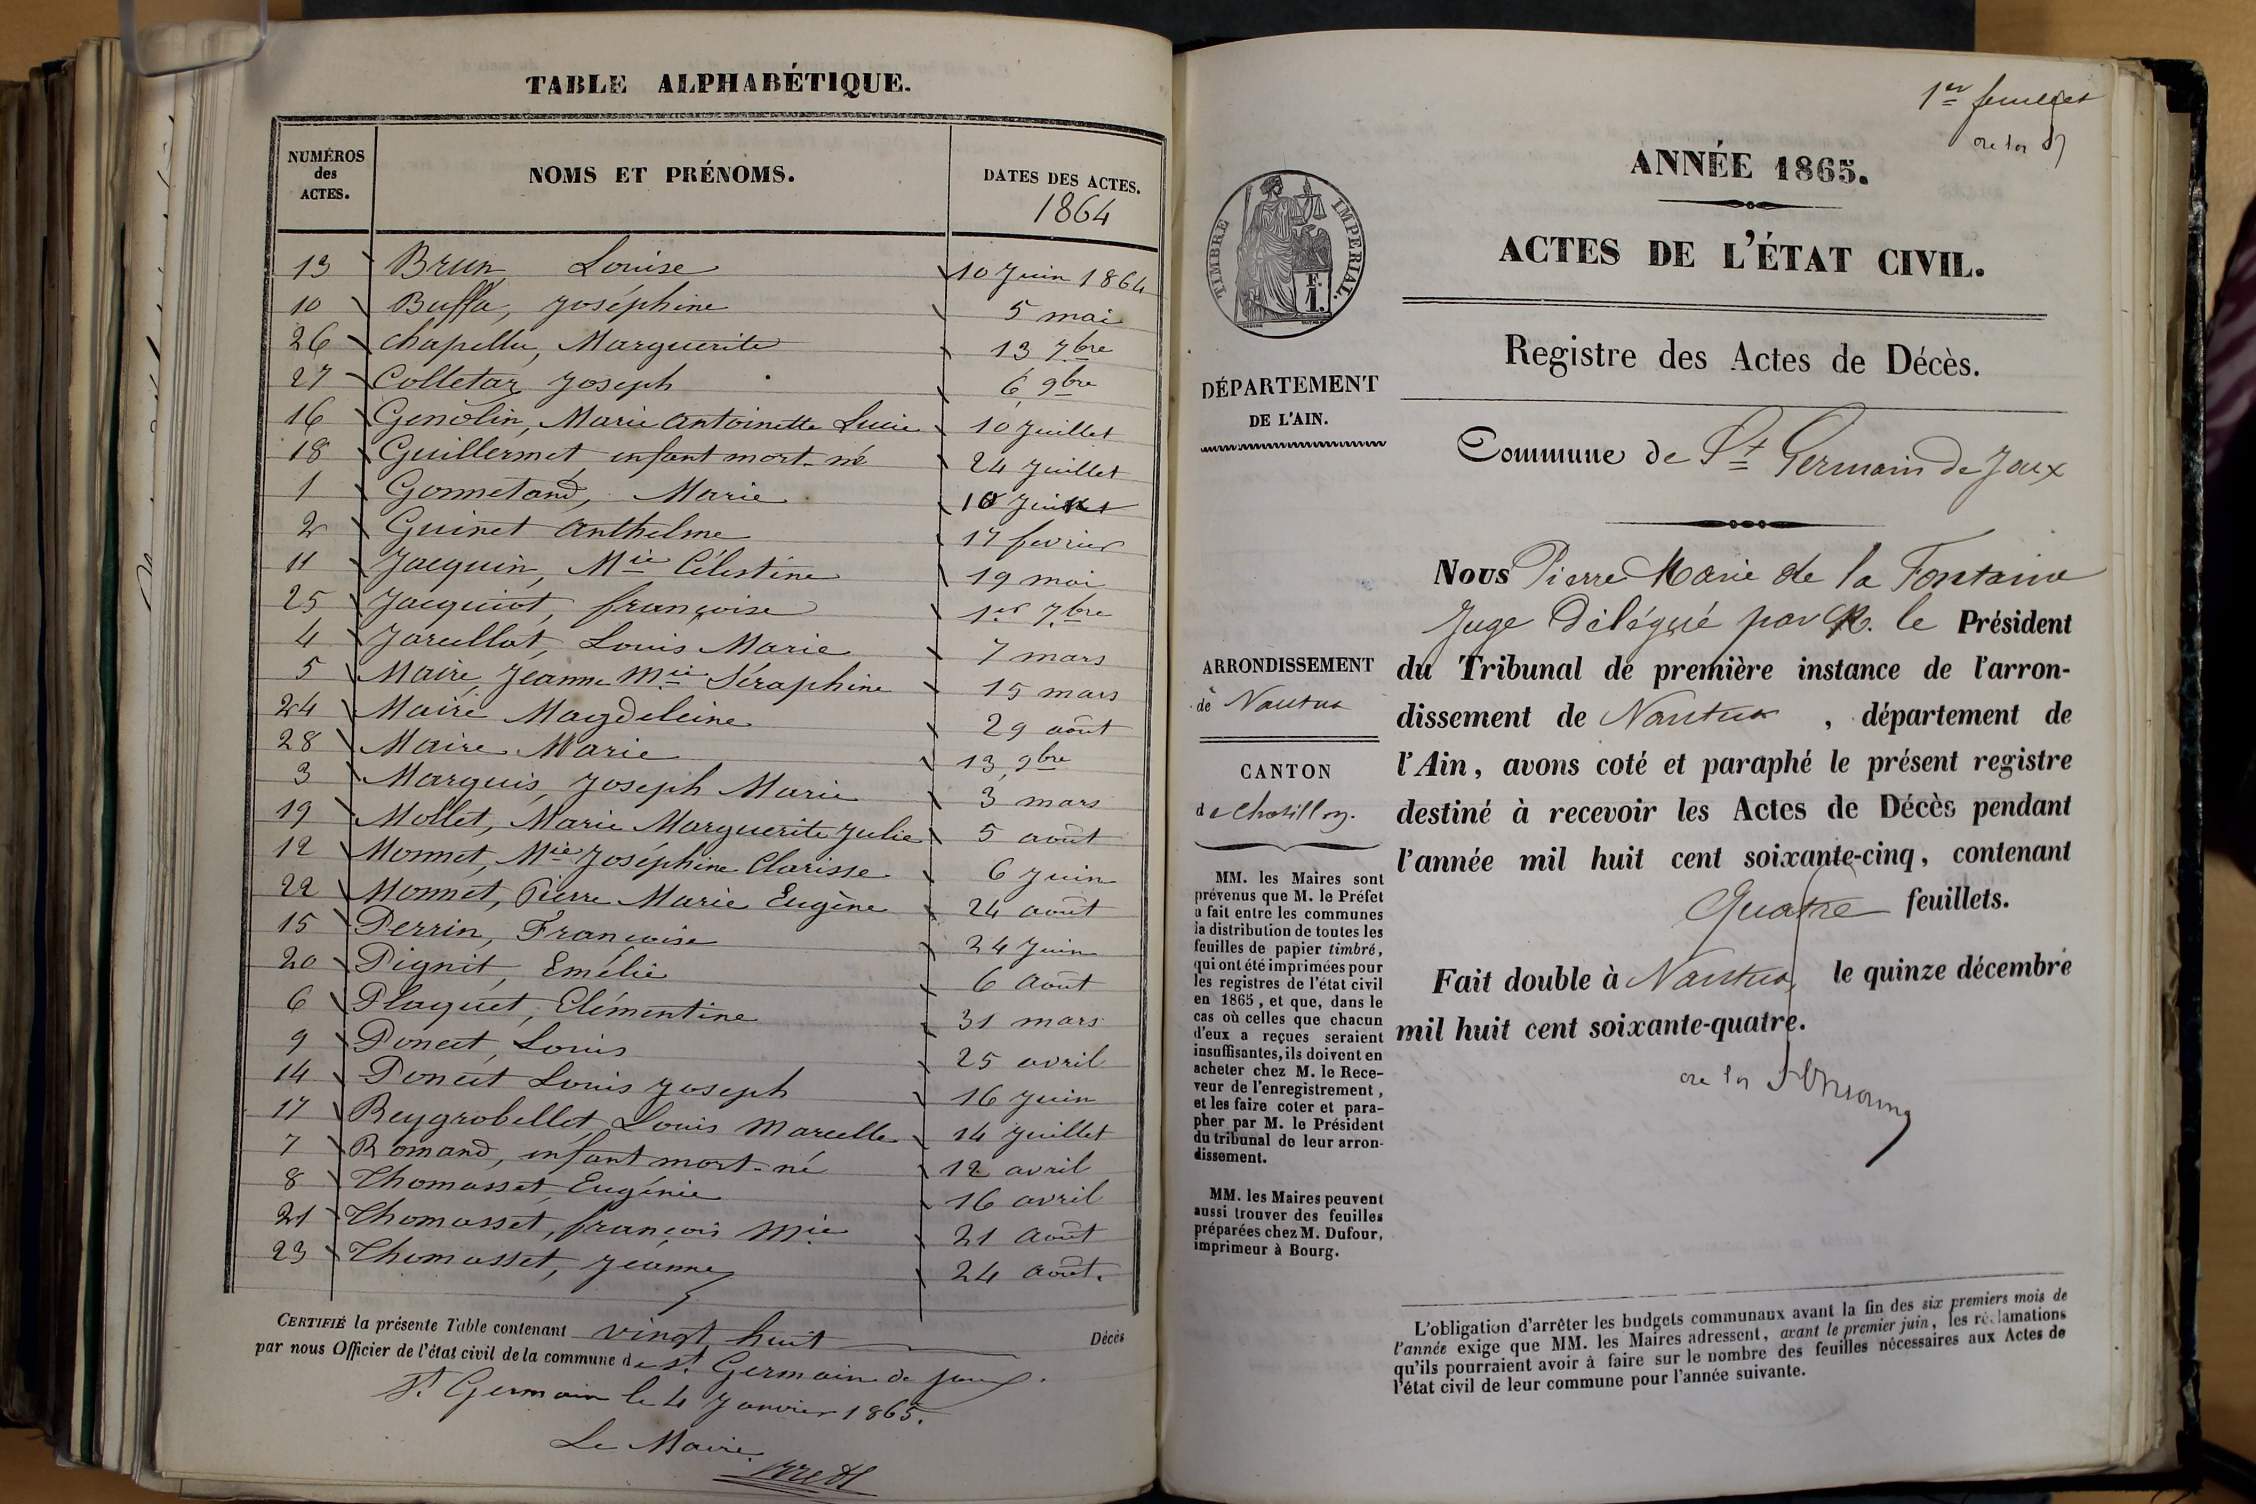 TABLE ALPHABÉTIQUE.
NUMÉROS des ACTES. NOMS ET PRÉNOMS. DATES DES ACTES.
1864
13 Brun Louise 10 Juin 1864
10 Buffa, Joséphine 5 mai
26 Chapellu, Marguerite 13 7bre
27 Colletaz Joseph 6 9bre
16 Genolin, Marie Antoinette Lucie 10 Juillet
18 Guillermet, enfant mort-né 24 Juillet
1 Gonnetand, Marie 10
2 Guinet Anthelme 17 fevrier
11 Jacquin, Mie Célestine 19 mai
25 Jacquiot, françoise 1er 7bre
4 Jarcellat, Louis Marie 7 mars
5 Maire, Jeanne Mie Séraphine 15 mars
24 Maire Magdeleine 29 août
28 Maire Marie 13 9bre
3 Marquis, Joseph Marie 3 mars
19 Mollet, Marie Marguerite Julie 5 août
12 Monnet, Mie Joséphine Clarisse 6 Juin
22 Monnet, Pierre Marie Eugène 24 août
15 Perrin, Françoise 24 Juin
20 Pignit, Emélie 6 Août
6 Plaquet, Clémentine 31 mars
9 Poncet, Louis 25 avril
14 Poncet Louis Joseph 16 Juin
17 Reygrobellet, Louis Marcelle 14 Juillet
7 Romand, enfant mort-né 12 avril
8 Thomasset Eugénie 16 avril
21 Thomasset, françois Mie 21 Août
23 Thomasset, Jeanne 24 août.
CERTIFIÉ la présente Table contenant vingt huit Décès
par nous Officier de l'état civil de la commune de St Germain de Joux.
St Germain le 4 Janvier 1865.
Le Maire
1er feuillet
ANNÉE 1865.
ACTES DE L'ÉTAT CIVIL.
TIMBRE IMPERIAL.
F. 1.
Registre des Actes de Décès.
DÉPARTEMENT
DE L'AIN.
Commune de St Germain de Joux
Nous Pierre Marie de la Fontaine
Juge Délégué par M. le Président
du Tribunal de première instance de l'arron-
dissement de Nantua, département de
l'Ain, avons coté et paraphé le présent registre
destiné à recevoir les Actes de Décès pendant
l'année mil huit cent soixante-cinq, contenant
Quatre feuillets.
Fait double à Nantua, le quinze décembre
mil huit cent soixante-quatre.
ARRONDISSEMENT
de Nantua
CANTON
de Chatillon.
MM. les Maires sont
prévenus que M. le Préfet
a fait entre les communes
la distribution de toutes les
feuilles de papier timbré,
qui ont été imprimées pour
les registres de l'état civil
en 1865, et que, dans le
cas où celles que chacun
d'eux a reçues seraient
insuffisantes, ils doivent en
acheter chez M. le Rece-
veur de l'enregistrement,
et les faire coter et para-
pher par M. le Président
du tribunal de leur arron-
dissement.
MM. les Maires peuvent
aussi trouver des feuilles
préparées chez M. Dufour,
imprimeur à Bourg.
L'obligation d'arrêter les budgets communaux avant la fin des six premiers mois de
l'année exige que MM. les Maires adressent, avant le premier juin, les réclamations
qu'ils pourraient avoir à faire sur le nombre des feuilles nécessaires aux Actes de
l'état civil de leur commune pour l'année suivante.